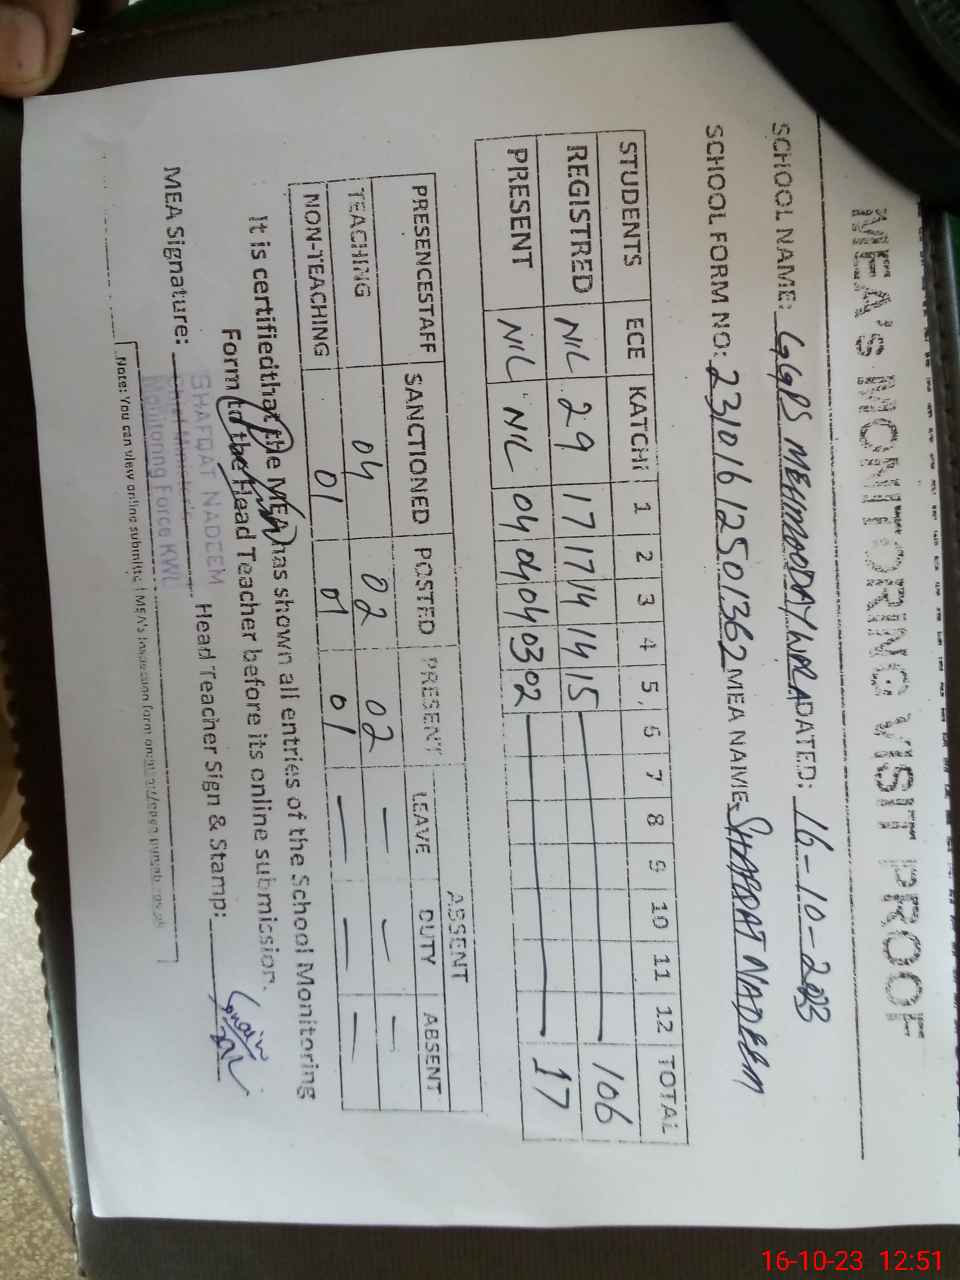 MEA'S MONITORING VISIT PROOF
SCHOOL NAME: GGPS MEHMOODAYWALA DATED: 16-10-2023
SCHOOL FORM NO: 23101612501362 MEA NAME SHAFQAT NADEEM
STUDENTS ECE KATCHI 1 2 3 4 5 6 7 8 9 10 11 12 TOTAL
REGISTRED NIL 29 17 17 14 14 15 106
PRESENT NIL NIL 04 04 04 03 02 17
ABSENT
PRESENCESTAFF SANCTIONED POSTED PRESENT LEAVE DUTY ABSENT
TEACHING 04 02 02 — — —
NON-TEACHING 01 01 01 — — —
It is certifiedthat the MEA has shown all entries of the School Monitoring
Form to the Head Teacher before its online submission.
MEA Signature: Head Teacher Sign & Stamp:
SHAFQAT NADEEM
Chief Minister's
Monitoring Force KWL
Note: You can view online submitted MEA's inspection form on
16-10-23 12:51